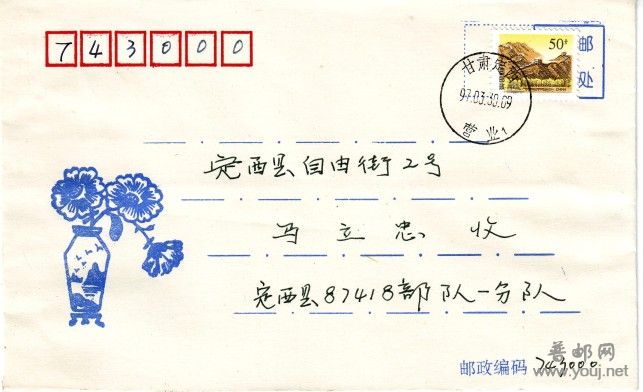 743000
50分
邮
处
甘肃定西
97.03.30.09
营业1
定西县自由街2号
马立忠 收
定西县87418部队一分队
邮政编码 743000
普邮网
www.youj.net